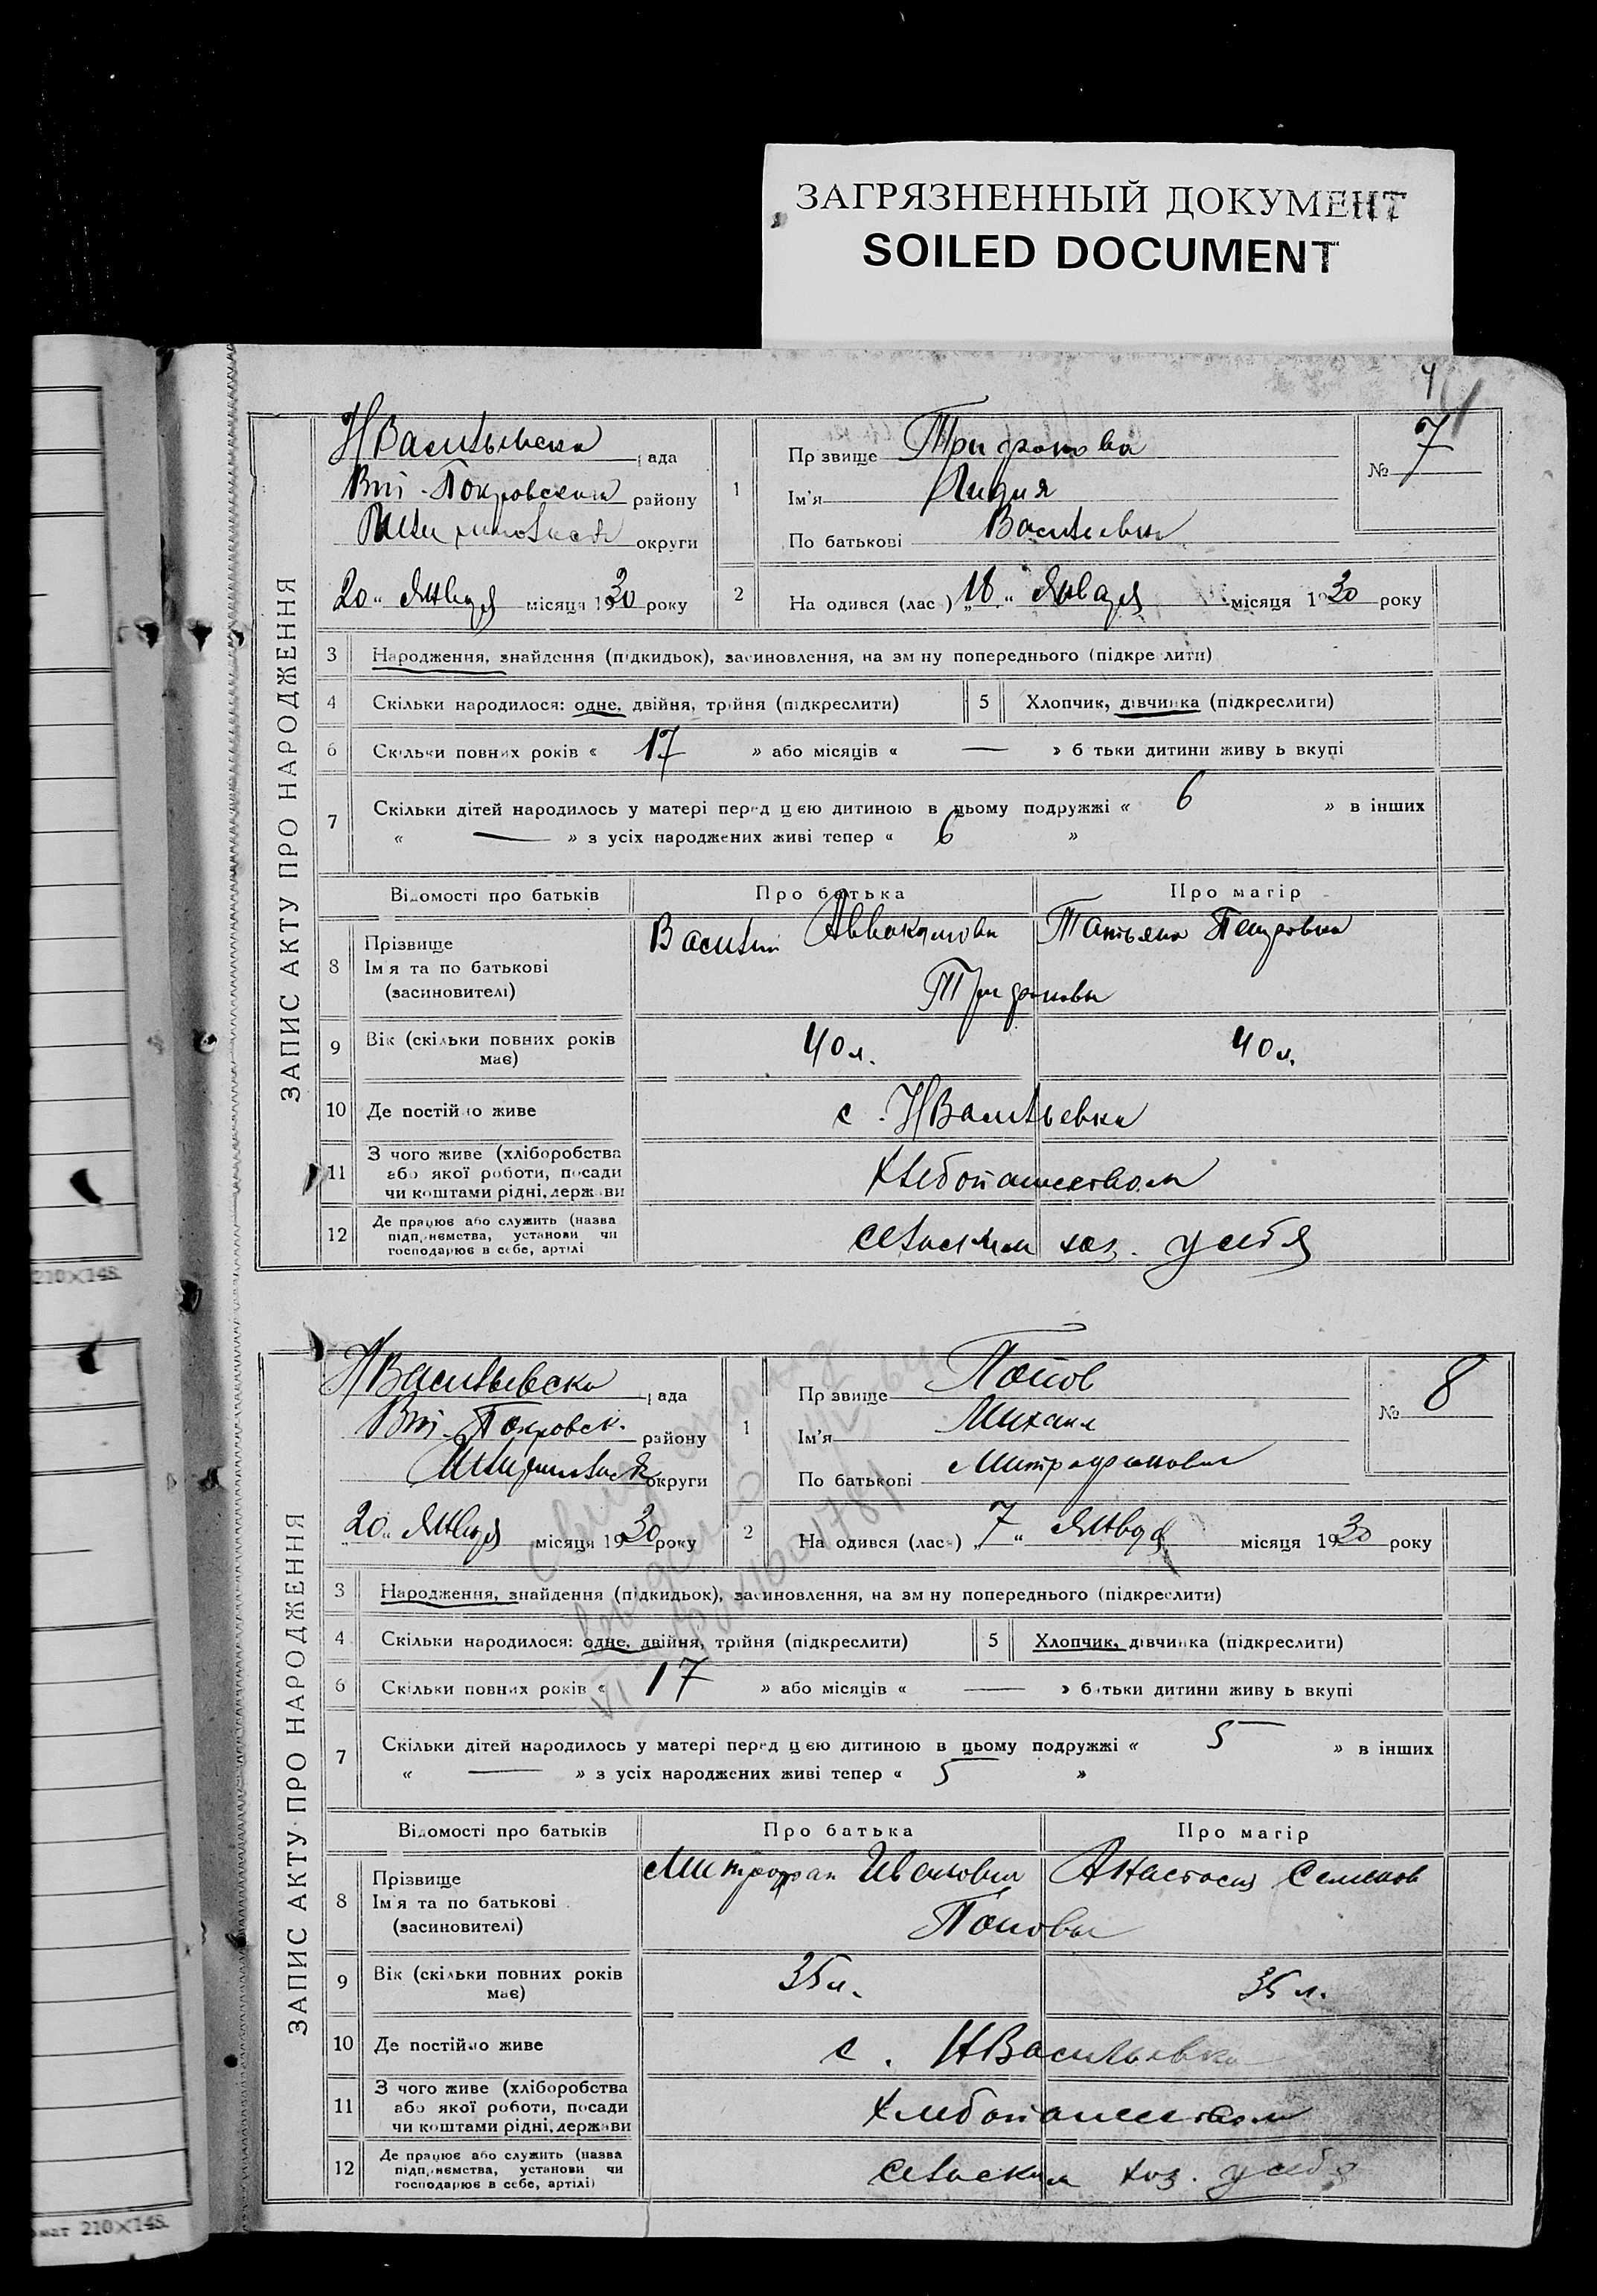 ЗАГРЯЗНЕННЫЙ ДОКУМЕНТ
SOILED DOCUMENT
4
ЗАПИС АКТУ ПРО НАРОДЖЕННЯ
НВасильевска рада
Вел-Покровский району
округи
20 „ Января місяця 1930 року
1 Прізвище Трифонова
Ім'я Лидия
По батькові Васильевна
№ 7
2 Народився (лась) „18 “ Января місяця 1930 року
3 Народження, знайдення (підкидьок), засиновлення, на зміну попереднього (підкреслити)
4 Скільки народилося: одне, двійня, трійня (підкреслити) 5 Хлопчик, дівчинка (підкреслити)
6 Скільки повних років « 17 » або місяців « — » батьки дитини живуть вкупі
7 Скільки дітей народилось у матері перед цією дитиною в цьому подружжі « 6 » в інших
« — » з усіх народжених живі тепер « 6 »
Відомості про батьків Про батька Про матір
8 Прізвище Ім'я та по батькові (засиновителі) Василий Аввакумови Татьяна Петровна
Трифоновы
9 Вік (скільки повних років має) 40 л. 40 л.
10 Де постійно живе с. НВасильевка
11 З чого живе (хліборобства
або якої роботи, посади
чи коштами рідні, держави
Хлебопашеством
12 Де працює або служить (назва
підприємства, установи чи
господарює в себе, артілі
сельским хоз. у себя
210×148.
ЗАПИС АКТУ ПРО НАРОДЖЕННЯ
НВасильевска рада
Вел-Покровск. району
округи
20 „ Января місяця 1930 року
1 Прізвище Попов
Ім'я Михаил
По батькові Митрофанович
№ 8
2 Народився (лась) „7 “ Января місяця 1930 року
3 Народження, знайдення (підкидьок), засиновлення, на зміну попереднього (підкреслити)
4 Скільки народилося: одне, двійня, трійня (підкреслити) 5 Хлопчик, дівчинка (підкреслити)
6 Скільки повних років « 17 » або місяців « — » батьки дитини живуть вкупі
7 Скільки дітей народилось у матері перед цією дитиною в цьому подружжі « 5 » в інших
« — » з усіх народжених живі тепер « 5 »
Відомості про батьків Про батька Про матір
8 Прізвище Ім'я та по батькові (засиновителі) Митрофан Иванович Анастасия Семенов
Поповы
9 Вік (скільки повних років має) 35 л. 35 л.
10 Де постійно живе с. НВасильевка
11 З чого живе (хліборобства
або якої роботи, посади
чи коштами рідні, держави
Хлебопашеством
12 Де працює або служить (назва
підприємства, установи чи
господарює в себе, артілі)
сельским хоз. у себя
210×148.